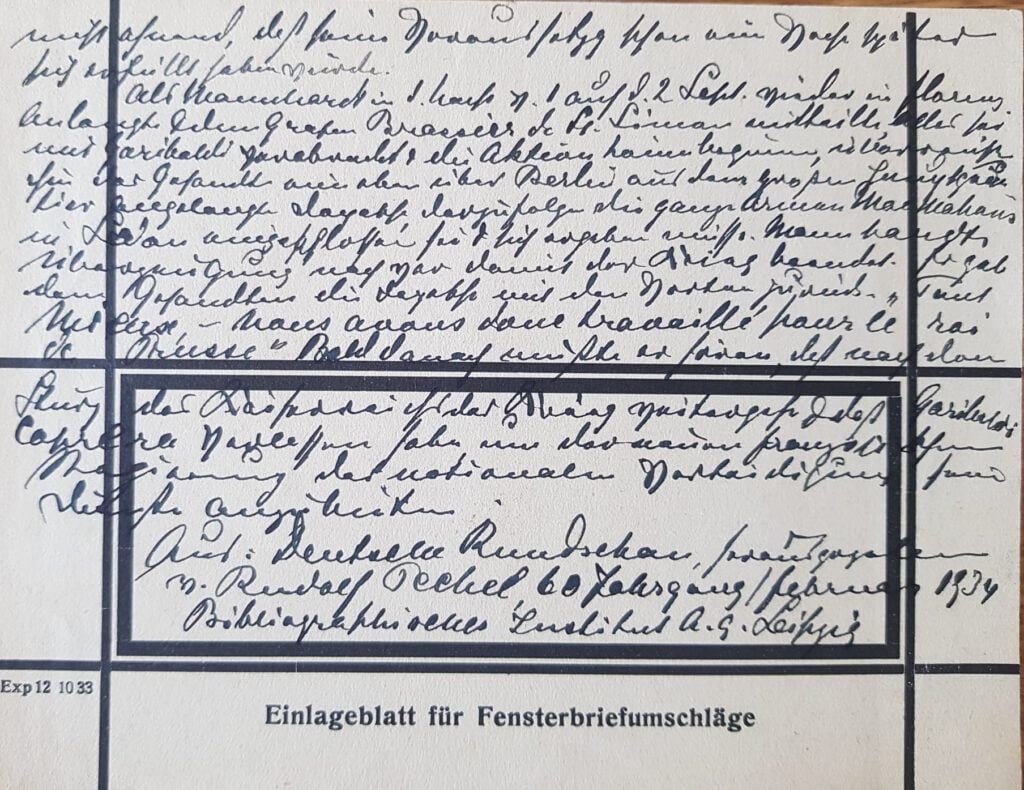 nicht ahnend, daß seine Voraussetzg schon eine Woche später
sich erfüllt haben würde.
Als Mannhardt in d. Nacht v. 1 auf d. 2 Sept. wieder in Florenz
anlangte & dem Grafen Brassier de St. Simon mitteilte, alles sei
mit Garibaldi verabredet & die Aktion kann beginnen, überreichte
ihm der Gesandte eine eben über Berlin aus dem großen Hauptquartier
hier angelangte Depesche derzufolge die ganze Armee MacMahons
in Sedan eingeschlossen sei & sich ergeben müsse. Mannhardts
Überzeugung nach war damit der Krieg beendet. Er gab
dem Gesandten die Depesche mit den Worten zurück. „Tant
mieux, – nous avons donc travaillé pour le roi
de Prusse“ Bald danach mußte er hören, daß nach dem
Sturz des Kaiserreichs der Krieg weitergehe & daß Garibaldi
Caprera verlassen habe um der neuen französischen
Regierung der nationalen Verteidigung seine
Dienste anzubieten
Aus: Deutsche Rundschau, herausgegeben
v. Rudolf Pechel 60 Jahrgang / Februar 1934
Bibliographisches Institut A. G. Leipzig
Exp 12 10 33
Einlageblatt für Fensterbriefumschläge